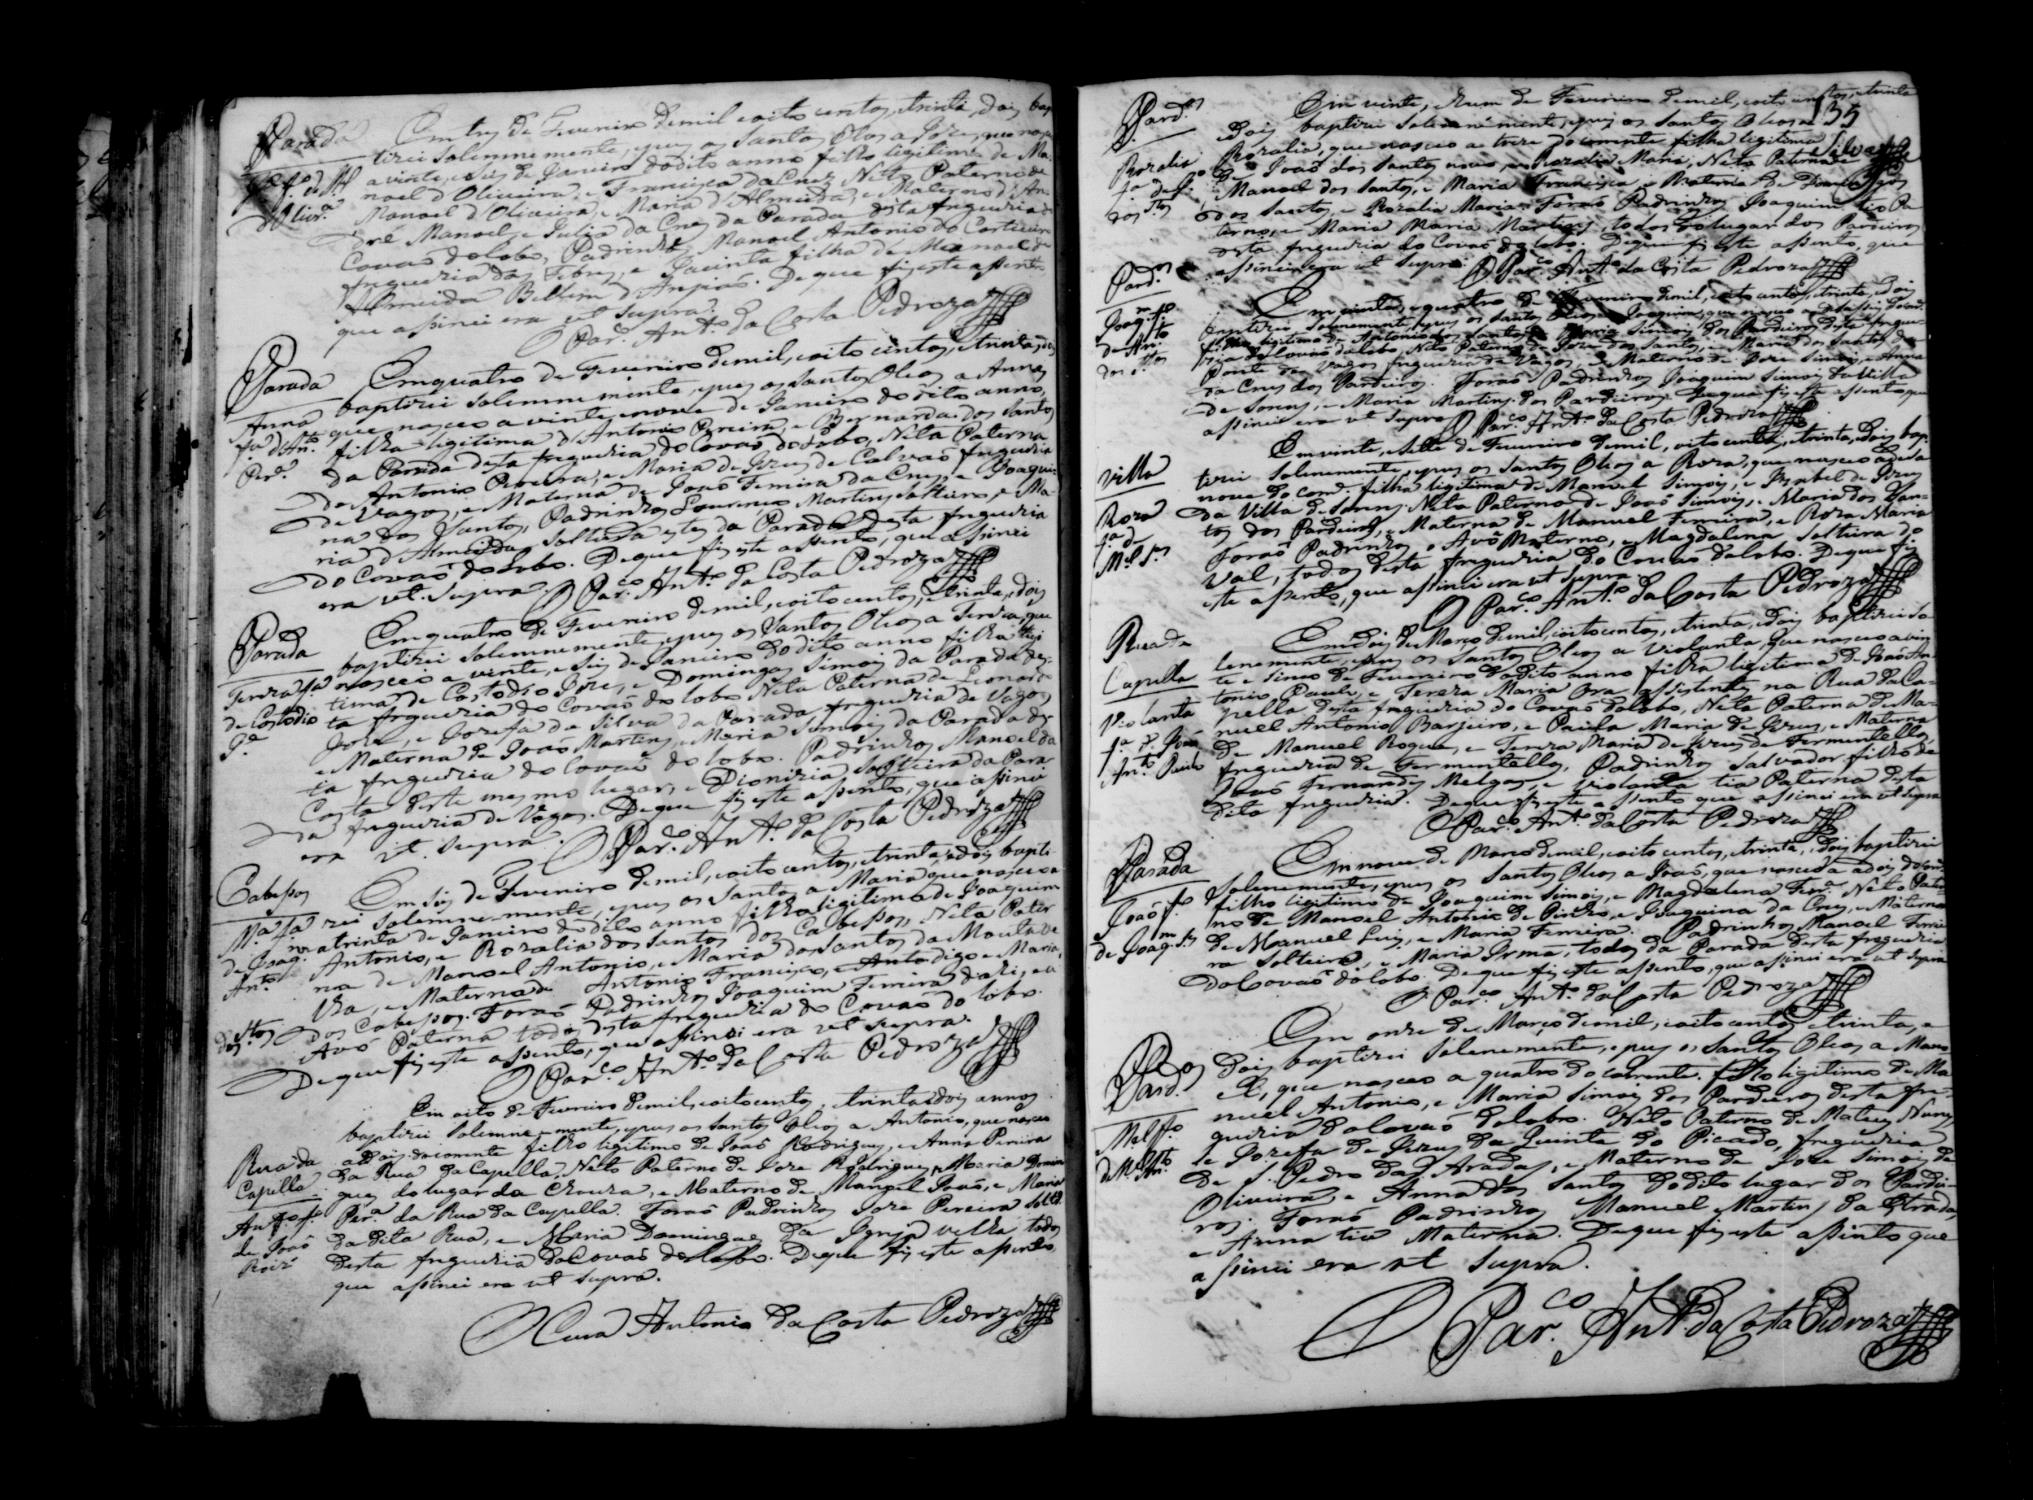 Parada
Em tres de Fevereiro de mil, e oito centos, e trinta, e dois bap
tizei Solemnemente, e puz os Santos Oleos a Joze, que nasceo
a vinte, e seis de Janeiro do dito anno filho legitimo de Ma-
noel d'Oliveira, e Francisca da Cruz Neto Paterno de
Manoel d'Oliveira, e Maria d'Almeida, e Materno d'An-
dré Manoel, e Julia da Cruz da Parada desta freguezia do
Covaõ do lobo, Padrinhos Manoel Antonio do
freguezia das Febres, e Jacinta filha de Manoel de
Almeida Bellem d'Ansiaõ. De que fiz este assento
que assinei era ut supra.
O Par.º Ant.º da Costa Pedroza
Parada
Anna
f.ª d'An.º
Per.ª
Em quatro de Fevereiro de mil, e oito centos, e trinta, e dois
baptizei Solemnemente, e puz os Santos Oleos a Anna,
que nasceo a vinte, e nove de Janeiro do dito anno,
filha legitima d'Antonio Pereira, e Bernarda dos Santos
da Parada desta freguezia do Covaõ do Lobo, Neta Paterna
de Antonio Pereira, e Maria de Jezus de Calvaõ freguezia
de Vagos, e Materna de Joaõ Ferreira da Cruz, e Joaqui-
na dos Santos, Padrinhos Lourenço Martins Solteiro, e Ma-
ria d'Almeida, Solteira estes da Parada desta freguezia
do Covaõ do Lobo. De que fiz este assento, que assinei
era ut. supra.
O Par.º Ant.º da Costa Pedroza
Parada
Tereza f.ª
de Costodio
J.e
Em quatro de Fevereiro de mil, e oito centos, e trinta, e dois
baptizei Solemnemente, e puz os Santos Oleos a Tereza, que
nasceo a vinte, e seis de Janeiro do dito anno filha legi
tima de Costodio Joze, e Domingas Simois da Parada des-
ta freguezia do Covaõ do lobo Neta Paterna de Leonardo
Joze, e Jozefa da Silva da Parada freguezia de Vagos
e Materna de Joaõ Martins, e Maria Simois da Parada des-
ta freguezia do Covaõ do lobo. Padrinhos Manoel da
Costa deste mesmo lugar, e Dionizia Solteira da Para-
da freguezia de Vagos. De que fiz este assento, que assinei
era ut. supra.
O Par.º Ant.º da Costa Pedroza
Cabessos
M.ª f.ª
de Joaq.m
Ant.º
dos S.tos
Em seis de Fevereiro de mil, e oito centos, e trinta, e dois bapti
zei Solemnemente, e puz os Santos a Maria que nasceo a
trinta de Janeiro do dito anno filha legitima de Joaquim
Antonio, e Rozalia dos Santos dos Cabessos, Neta Pater
na de Manoel Antonio, e Maria dos Santos da
e Materna de Antonio Francisco, e Maria,
dos Cabessos. Foraõ Padrinhos Joaquim Ferreira d'ali, e a
Avó Paterna todos desta freguezia do Covaõ do lobo.
De que fiz este assento, que assinei era ut supra.
O Par.º Ant.º da Costa Pedroza
Rua da
Capella
Ant.º f.º
de Joaõ
Roiz
Em oito de Fevereiro de mil, e oito centos, e trinta e dois annos
baptizei Solemnemente, e puz os Santos Oleos a Antonio, que nasceo
a dois do corrente filho legitimo de Joaõ Rodrigues, e Anna Pereira
da Rua da Capella, Neto Paterno de Joze Rodrigues, e Maria Domin
gues do lugar da Choura, e Materno de Manoel Joaõ, e Maria
Per.ª da Rua da Capella. Foraõ Padrinhos Joze Pereira Soltr.º
da dita Rua, e Maria Domingues da Igreja velha todos
desta freguezia do Covaõ do lobo. De que fiz este assento
que assinei era ut supra.
O Cura Antonio da Costa Pedroza
35
Silva
Pard.os
Rozalia
f.ª de J.º
dos S.tos
Em vinte, e hum de Fevereiro de mil, e oito centos, e trinta
e dois baptizei Solemnemente, e puz os Santos Oleos a
Rozalia, que nasceo a treze do corrente filha legitima
de Joaõ dos Santos novo, e Rozalia Maria, Neta Paterna de
Manoel dos Santos, e Maria Francisca, e Materna de Domingos
dos Santos, e Rozalia Maria. Foraõ Padrinhos Joaquim tio Pa
terno, e Maria Martins, todos do lugar dos Pardeiros
desta freguezia do Covaõ do lobo. De que fiz este assento, que
assinei era ut supra. O Par.co Ant.º da Costa Pedroza
Pard.os
Joaq.m f.º
de An.to
dos S.tos
Em vinte, e quatro de Fevereiro de mil, e oito centos, e trinta, e dois
baptizei Solenemente, e puz os Santos Oleos a Joaquim, que nasceo a
filho legitimo de Antonio dos Santos, e Maria Simois dos Pardeiros desta fregue-
zia do Covaõ do lobo, Neto Paterno de Joze dos Santos, e Maria dos Santos da
Ponte de Vagos freguezia de Vagos, e Materno de Joze Simois, e Anna
da Cruz dos Pardeiros. Foraõ Padrinhos Joaquim Simois da Villa
de Sorens, e Maria Martins dos Pardeiros. De que fiz este assento que
assinei era ut supra. O Par.co Ant.º da Costa Pedroza
Villa
Roza
f.ª de
M.el S.es
Em vinte, e sette de Fevereiro de mil, e oito centos, e trinta, e dois bap-
tizei Solenemente, e puz os Santos Oleos a Roza, que nasceo a
nove do corr.e filha legitima de Manuel Simois, e Izabel de Jezus
da Villa de Sorens. Neta Paterna de Joaõ Simois, e Maria dos San-
tos dos Pardeiros, e Materna de Manuel Ferreira, e Roza Maria
Foraõ Padrinhos o Avô Materno, e Magdalena Solteira do
Val, todos desta freguezia do Covaõ do lobo. De que fiz
este assento, que assinei era ut supra.
O Par.co Ant.º da Costa Pedroza
Rua da
Capella
Violanta
f.ª d. Joaõ
Ant.º Paulo
Em dois de Março de mil, e oito centos, e trinta, e dois baptizei So-
lenemente, e puz os Santos Oleos a Violanta, que nasceo a vin
te e sinco de Fevereiro do dito anno filha legitima de Joaõ An-
tonio, Paulo, e Tereza Maria ora assistentes na Rua da Ca-
pella desta freguezia do Covaõ do lobo, Neta Paterna de Ma-
nuel Antonio Barjeiro, e Paula Maria de Jezus, e Materna
de Manuel Roque, e Tereza Maria de Jezus de Fermentellos,
freguezia de Fermentellos, Padrinhos Salvador filho de
Joaõ Fernandes Melgas, e Violanta tia Paterna desta
dita freguezia. De que fiz este assento que assinei era ut supra
O Par.co Ant.º da Costa Pedroza
Parada
Joaõ f.º
de Joaq.m S.es
Em nove de Março de mil, e oito centos, e trinta, e dois baptizei
Solenemente, e puz os Santos Oleos a Joaõ, que nasceo a dois do corr.e
filho legitimo de Joaquim Simois, e Magdalena Ferr.ª Neto Pater
no de Manoel Antonio de Pinho, e Joaquina da Cruz, e Materno
de Manuel Luis, e Maria Ferreira. Padrinhos Manoel Ferrei
ra Solteiro, e Maria Irmã, todos da Parada desta freguezia
do Covaõ do lobo. De que fiz este assento, que assinei era ut supra
O Par.co Ant.º da Costa Pedroza
Pard.os
M.el f.º
de M.el Ant.º
Em onze de Março de mil, e oito centos e trinta, e
dois baptizei Solenemente, e puz os Santos Oleos a Mano
el, que nasceo a quatro do corrente. filho legitimo de Ma-
nuel Antonio, e Maria Simois dos Pardeiros desta fre-
guezia do Covaõ do lobo. Neto Paterno de Mateus Nunes,
e Jozefa de Jezus da Quinta do Picado, freguezia
de S. Pedro das Aradas, e Materno de Joze Simois de
Oliveira, e Anna dos Santos do dito lugar dos Pardei-
ros. Foraõ Padrinhos Manuel Martins da Estrada,
e Anna tia Materna. De que fiz este assento que
assinei era ut supra.
O Par.co Ant.º da Costa Pedroza